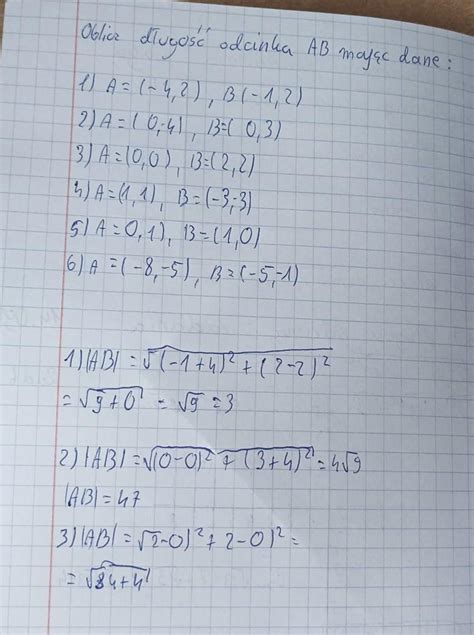 Oblicz długość odcinka AB mając dane:
1) A = (-4,2), B(-1,2)
2) A = (0,-4), B=( 0,3)
3) A=(0,0), B=(2,2)
4) A=(1,1), B=(-3,-3)
5) A=0,1), B=(1,0)
6) A =(-8,-5), B=(-5,-1)
1) |AB| = √(-1+4)² + (2-2)²
= √9+0 = √9 = 3
2) |AB| = √(0-0)² + (3+4)² = 4√9
|AB| = 47
3) |AB| = √2-0)² + 2-0)² =
= √4+4